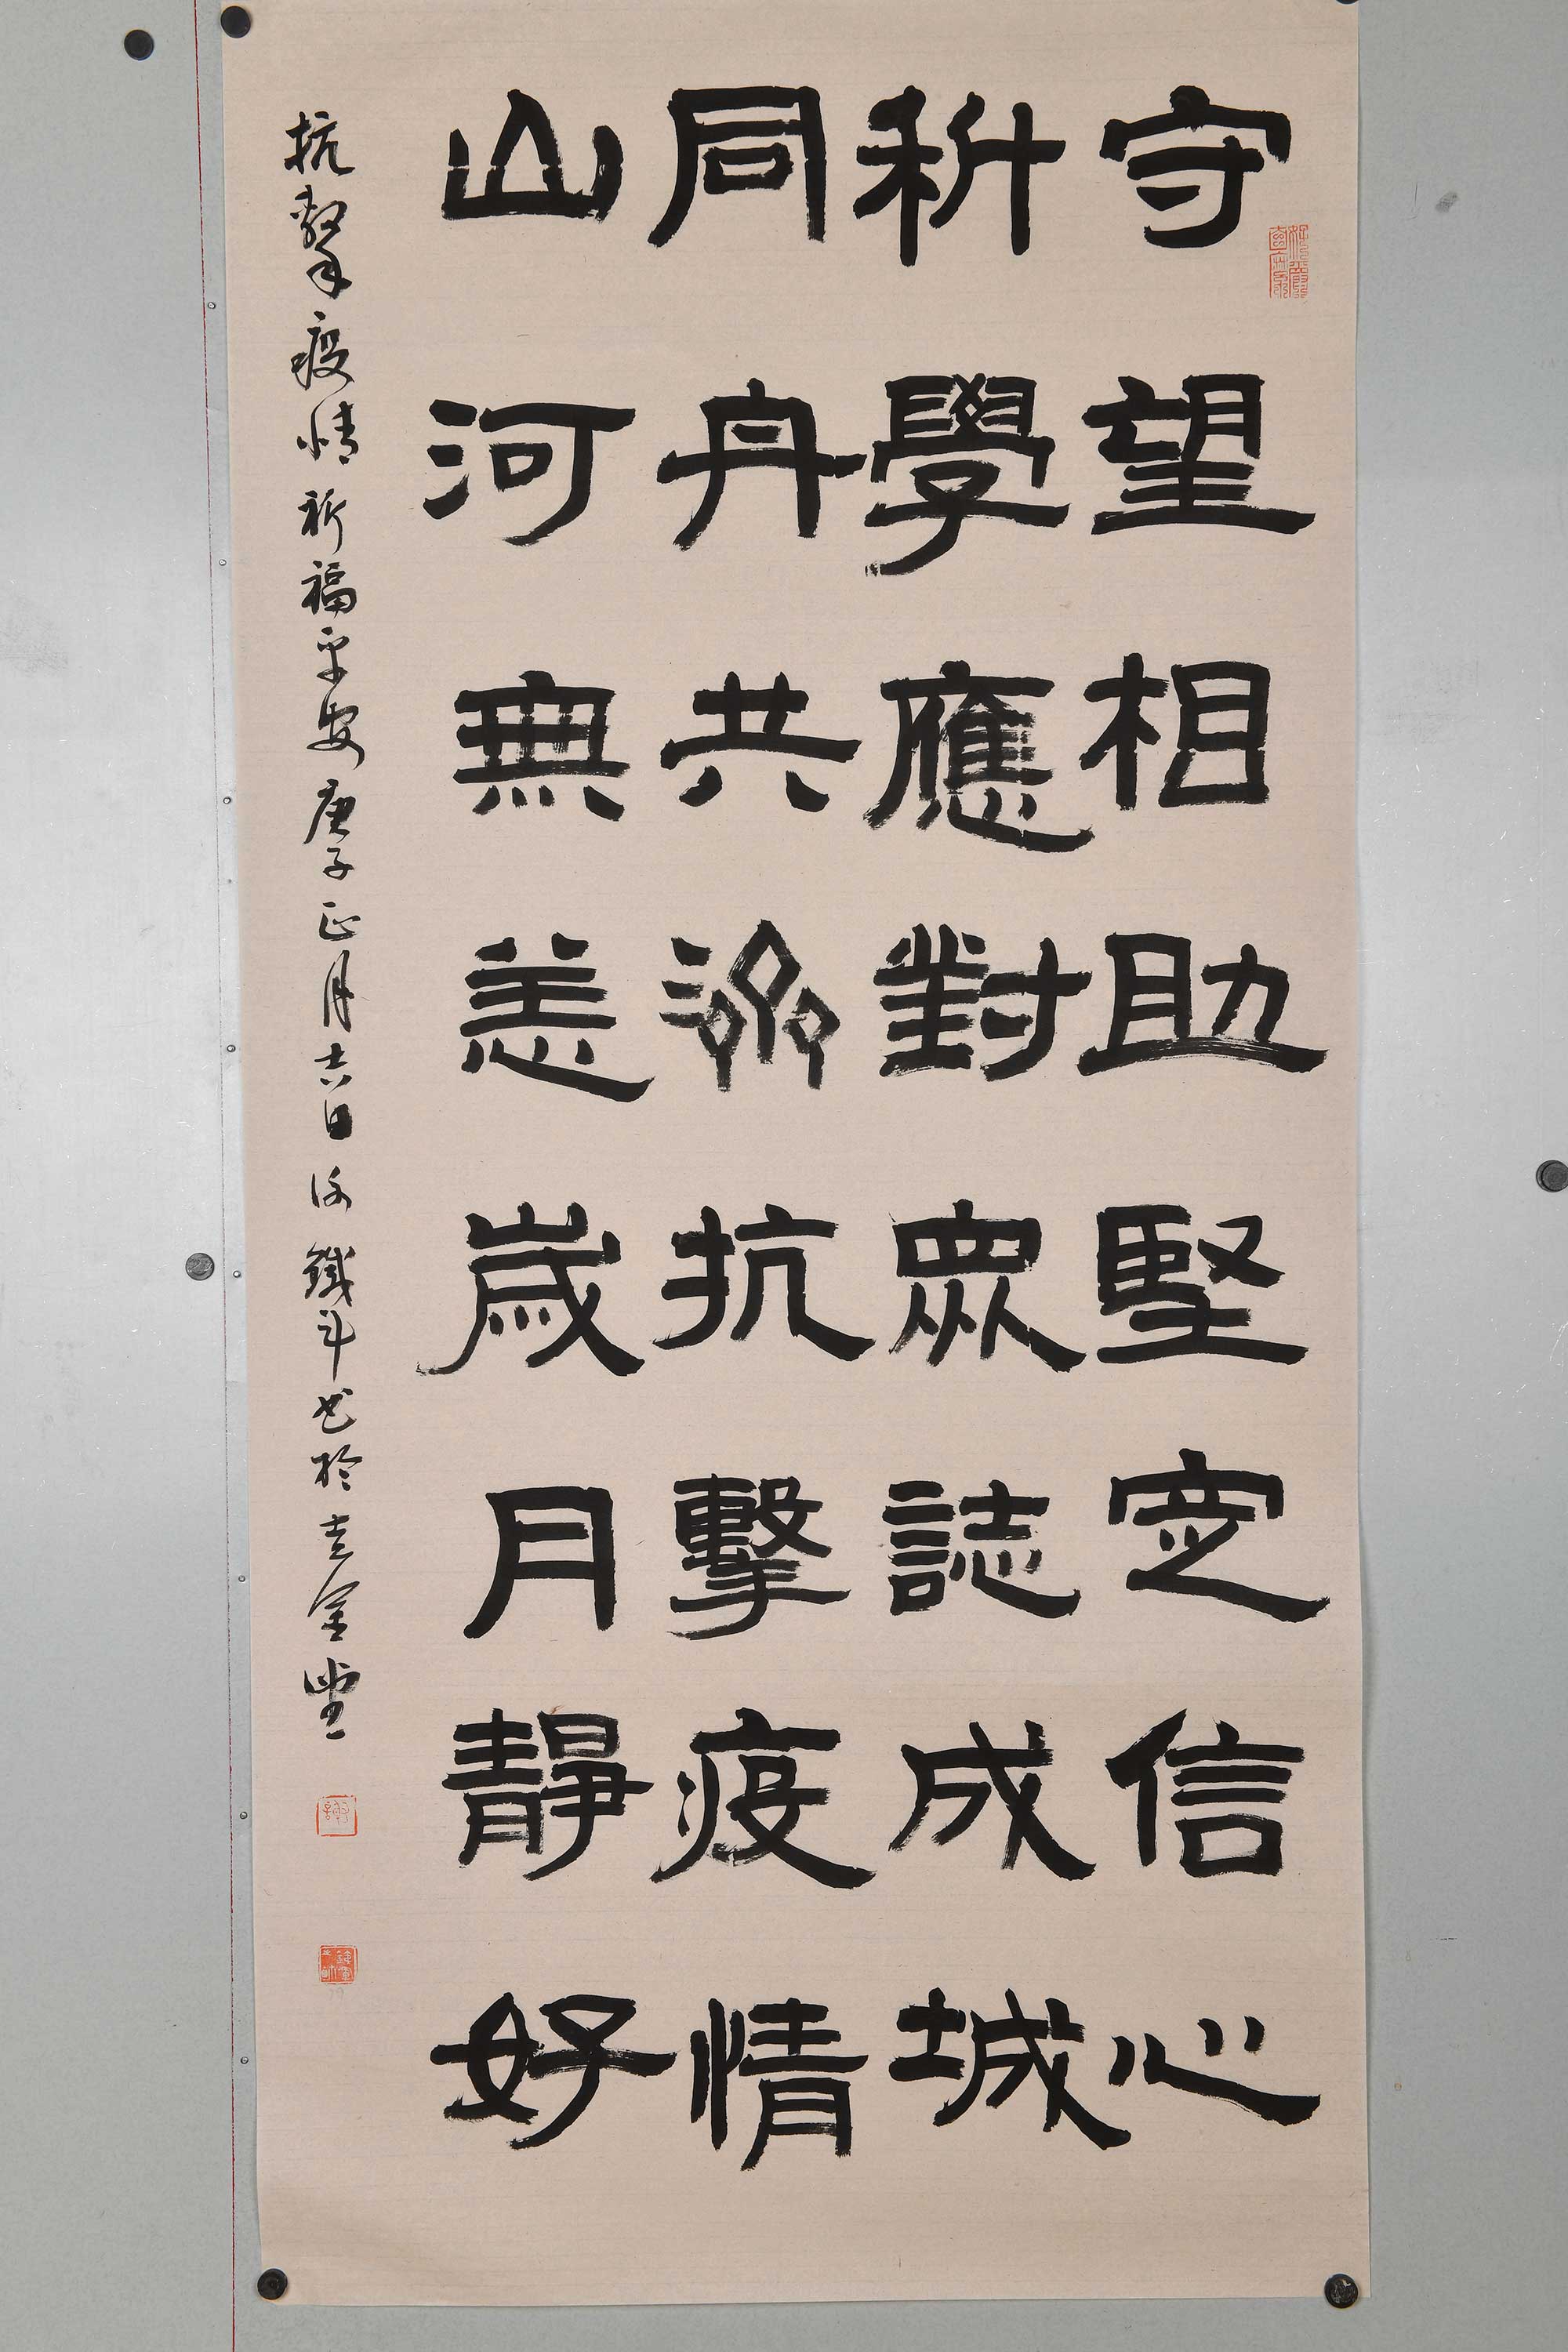 守望相助堅定信心
科學應對眾誌成城
同舟共濟抗擊疫情
山河無恙歲月靜好
抗擊疫情祈福平安庚子正月十六日 鐵斗書於 金堂